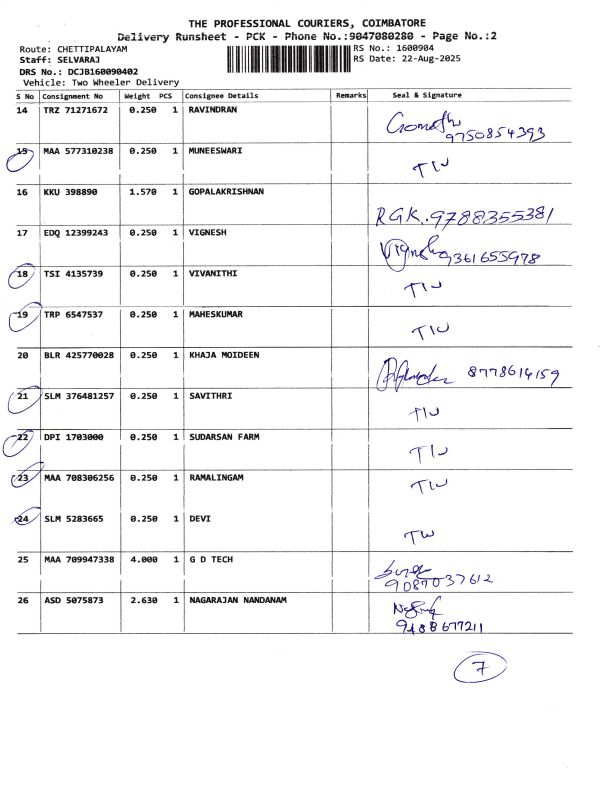 THE PROFESSIONAL COURIERS, COIMBATORE
Delivery Runsheet - PCK - Phone No.:9047080280 - Page No.:2
Route: CHETTIPALAYAM RS No.: 1600904
Staff: SELVARAJ RS Date: 22-Aug-2025
DRS No.: DCJB160090402
Vehicle: Two Wheeler Delivery
S No Consignment No Weight PCS Consignee Details Remarks Seal & Signature
14 TRZ 71271672 0.250 1 RAVINDRAN
9750854393
15 MAA 577310238 0.250 1 MUNEESWARI
16 KKU 398890 1.570 1 GOPALAKRISHNAN
RGK. 9788355381
17 EDQ 12399243 0.250 1 VIGNESH
9361655978
18 TSI 4135739 0.250 1 VIVANITHI
19 TRP 6547537 0.250 1 MAHESKUMAR
20 BLR 425770028 0.250 1 KHAJA MOIDEEN
8778614159
21 SLM 376481257 0.250 1 SAVITHRI
22 DPI 1703000 0.250 1 SUDARSAN FARM
23 MAA 708306256 0.250 1 RAMALINGAM
24 SLM 5283665 0.250 1 DEVI
25 MAA 709947338 4.000 1 G D TECH
9087037612
26 ASD 5075873 2.630 1 NAGARAJAN NANDANAM
9488677211
7